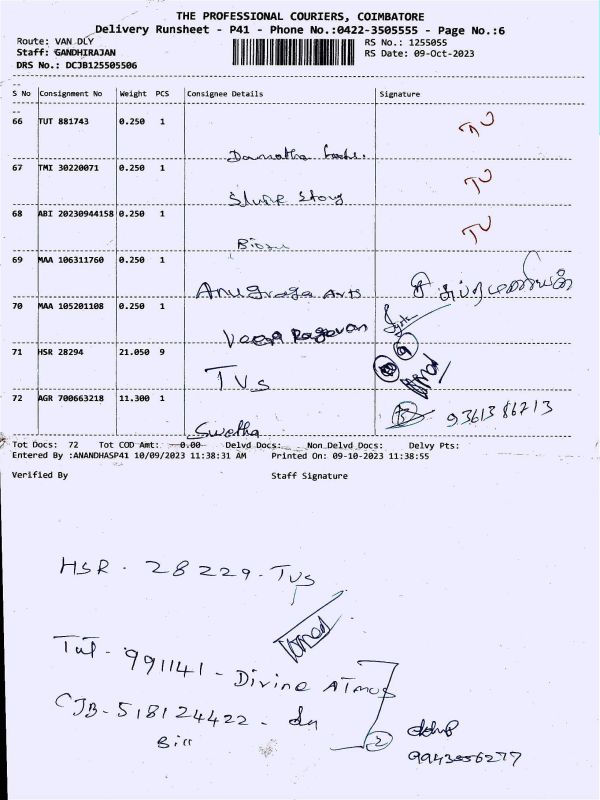 THE PROFESSIONAL COURIERS, COIMBATORE
Delivery Runsheet - P41 - Phone No.:0422-3505555 - Page No.:6
Route: VAN DLY RS No.: 1255055
Staff: GANDHIRAJAN RS Date: 09-Oct-2023
DRS No.: DCJB125505506
S No Consignment No Weight PCS Consignee Details Signature
66 TUT 881743 0.250 1
TU
67 TMI 30220071 0.250 1
Slurp Story TU
68 ABI 20230944158 0.250 1
TU
69 MAA 106311760 0.250 1
Anugraga Arts சி சுப்ரமணியன்
70 MAA 105201108 0.250 1
Veera Ragavan
71 HSR 28294 21.050 9
TVS 9
72 AGR 700663218 11.300 1
Swetha 9361386713
Tot Docs: 72 Tot COD Amt: 0.00 Delvd Docs: Non Delvd Docs: Delvy Pts:
Entered By :ANANDHASP41 10/09/2023 11:38:31 AM Printed On: 09-10-2023 11:38:55
Verified By Staff Signature
HSR - 28229 - TVS
Tut - 991141 - Divine ATMUS
CJB - 518124422 -
Bill 2
9943056277